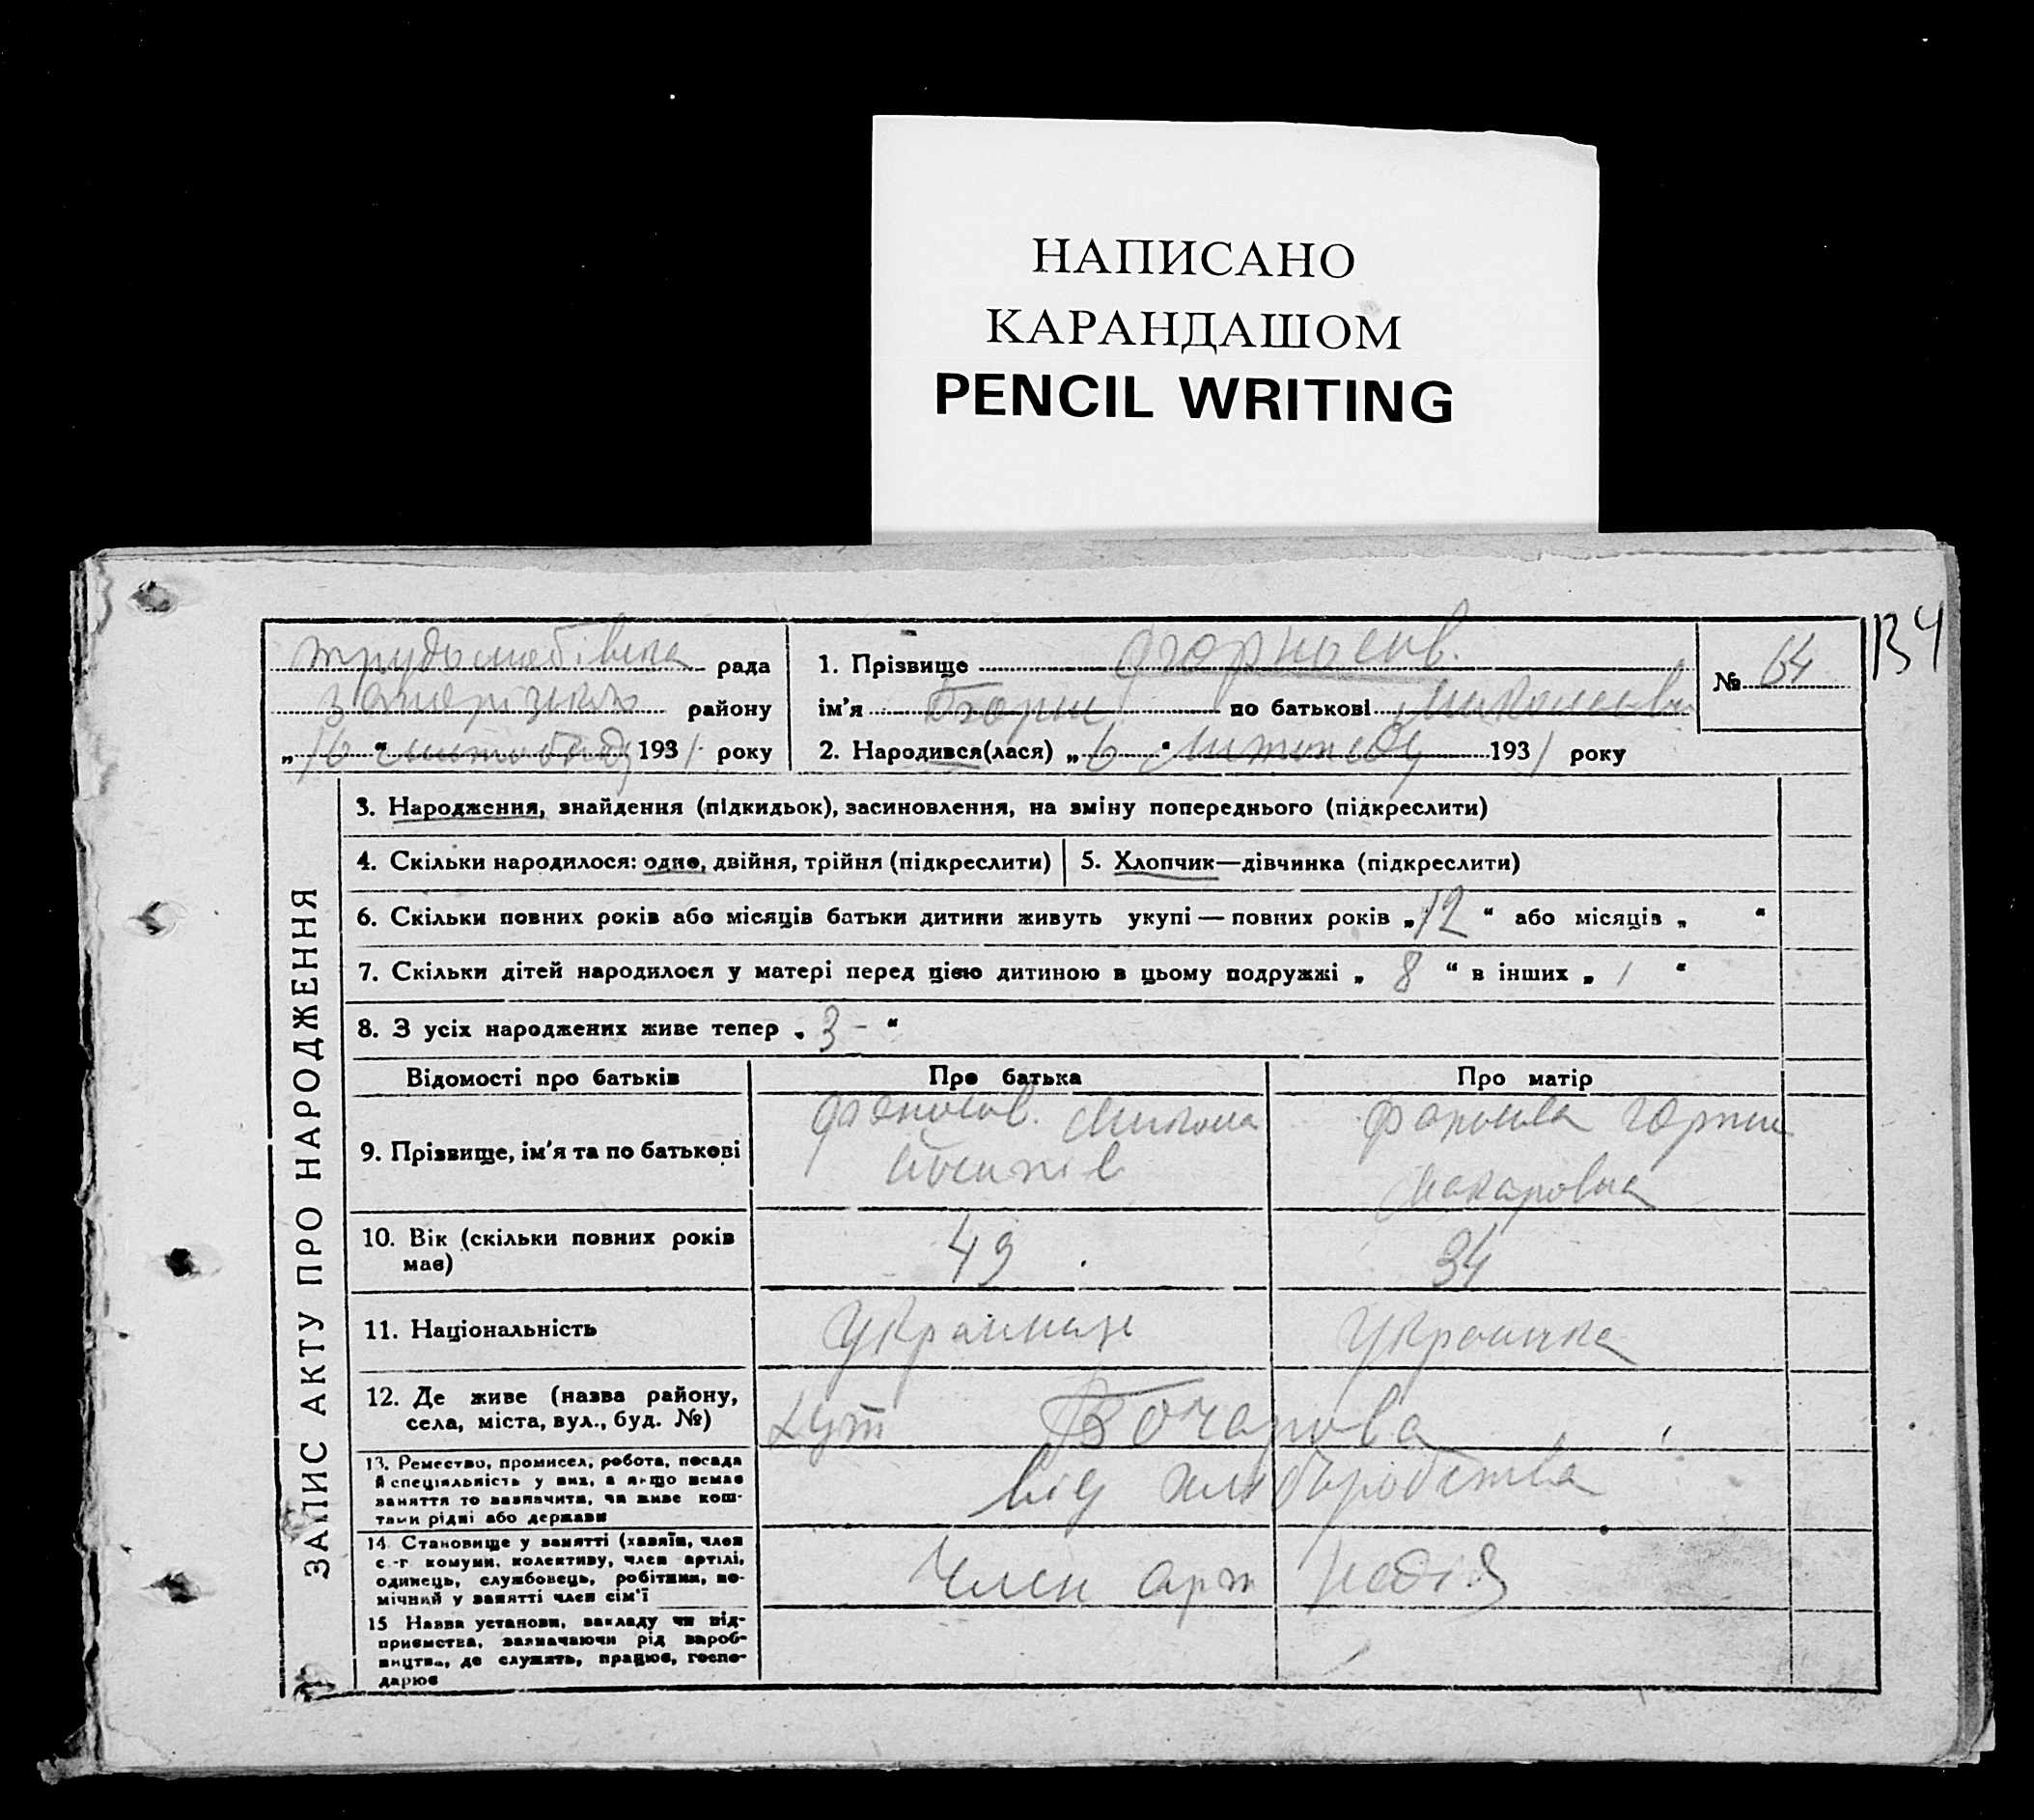 НАПИСАНО
КАРАНДАШОМ
PENCIL WRITING
134
рада
району
„16“ листопаду 1931 року
1. Прізвище
№ 64
ім'я по батькові
2. Народився(лася) „6“ листопаду 1931 року
ЗАПИС АКТУ ПРО НАРОДЖЕННЯ
3. Народження, знайдення (підкидьок), засиновлення, на зміну попереднього (підкреслити)
4. Скільки народилося: одно, двійня, трійня (підкреслити)
5. Хлопчик—дівчинка (підкреслити)
6. Скільки повних років або місяців батьки дитини живуть укупі — повних років „12“ або місяців „ “
7. Скільки дітей народилося у матері перед цією дитиною в цьому подружжі „ 8 “ в інших „ 1 “
8. З усіх народжених живе тепер „ 3 - “
Відомості про батьків
Про батька
Про матір
9. Прізвище, ім'я та по батькові
Микола
Макаровна
10. Вік (скільки повних років
має)
49
34
11. Національність
Украинец
Украинка
12. Де живе (назва району,
села, міста, вул., буд. №)
хут Бочарова
13. Ремество, промисел, робота, посада
й спеціяльність у них, а якщо немає
заняття то зазначити, чи живе кош-
тами рідні або держави
від хліборобства
14. Становище у занятті (хазяїн, член
с.-г комуни, колективу, член артілі,
одинець, службовець, робітник, по-
мічний у занятті член сім'ї
Член арт Надія
15 Назва установи, закладу чи під-
приємства, зазначаючи рід вироб-
ництва, де служить, працює, госпо-
дарює